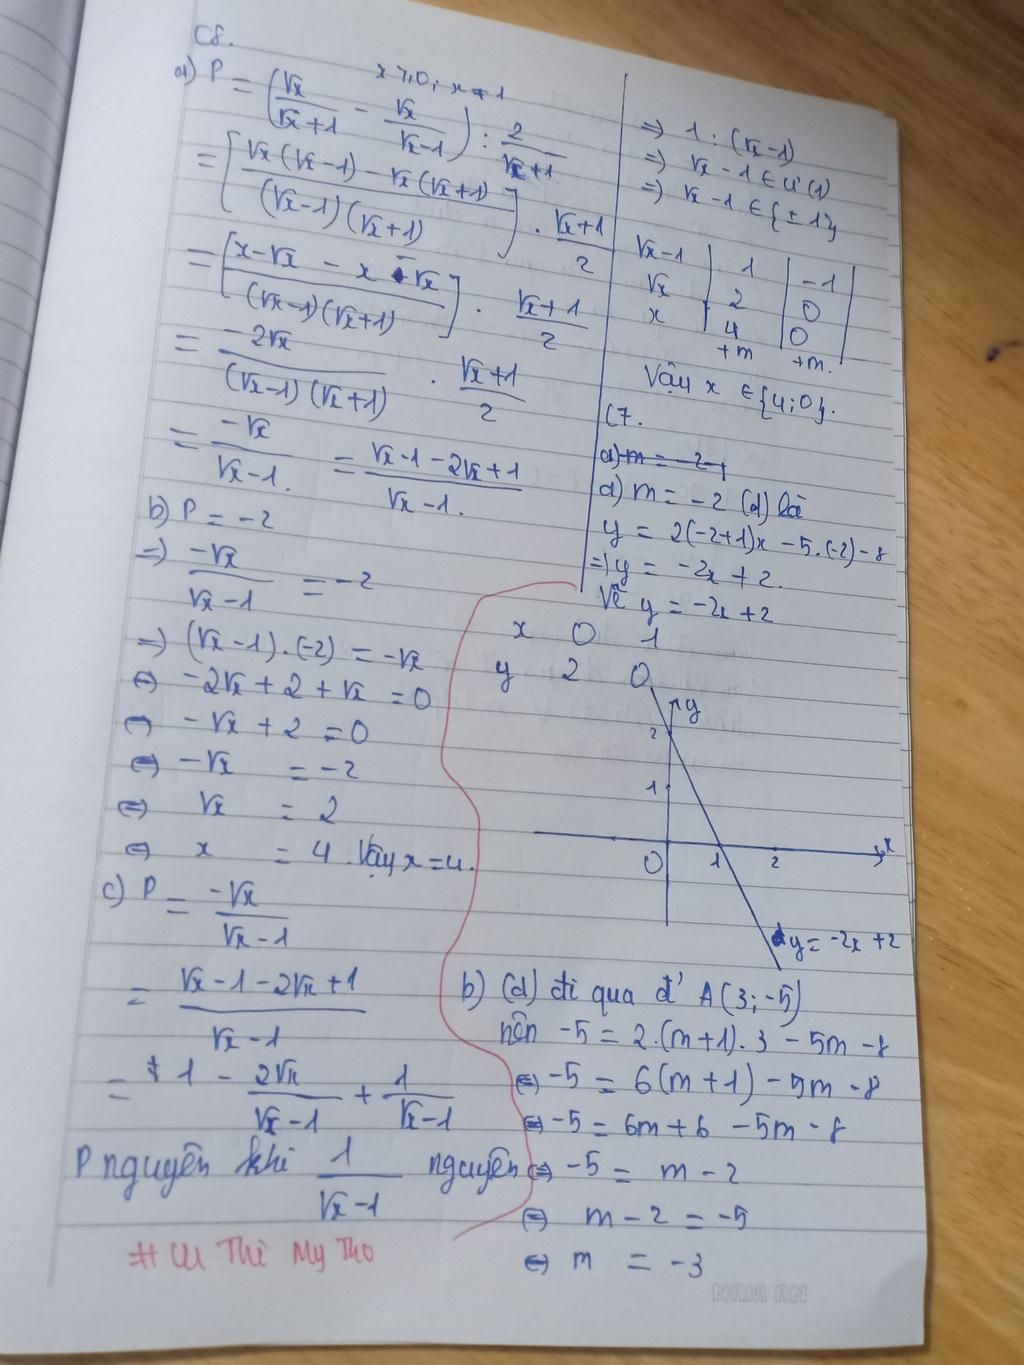 C8.
a) P = (√x/(√x+1) - √x/(√x-1)) : 2/(√x+1) x ⩾ 0; x ≠ 1
= [(√x(√x-1) - √x(√x+1))/((√x-1)(√x+1))] . (√x+1)/2
= [(x-√x - x - √x)/((√x-1)(√x+1))] . (√x+1)/2
= -2√x/((√x-1)(√x+1)) . (√x+1)/2
= -√x/(√x-1). = (√x-1-2√x+1)/(√x-1).
b) P = -2
=) -√x/(√x-1) = -2
=) (√x-1).(-2) = -√x
⇔ -2√x + 2 + √x = 0
⇔ -√x + 2 = 0
⇔ -√x = -2
⇔ √x = 2
⇔ x = 4. Vậy x=4.
c) P = -√x/(√x-1)
= (√x-1-2√x+1)/(√x-1)
= 1 - 2√x/(√x-1) + 1/(√x-1)
P nguyên khi 1/(√x-1) nguyên
=) 1 : (√x-1)
=) √x-1 ∈ Ư(1)
=) √x-1 ∈ {±1}
√x-1 | 1 | -1
√x | 2 | 0
x | 4 | 0
+m +m.
Vậy x ∈ {4;0}.
C7.
a) m = -2
a) m = -2 (d) là
y = 2(-2+1)x - 5.(-2) - 8
=) y = -2x + 2.
Vẽ y = -2x + 2
x 0 1
y 2 0
y
2
1
0 1 2 x
y = -2x + 2
b) (d) đi qua đ' A(3; -5)
nên -5 = 2.(m+1).3 - 5m - 8
⇔ -5 = 6(m+1) - 5m - 8
⇔ -5 = 6m + 6 - 5m - 8
⇔ -5 = m - 2
⇔ m - 2 = -5
⇔ m = -3
Thi My Tho
NAM AN